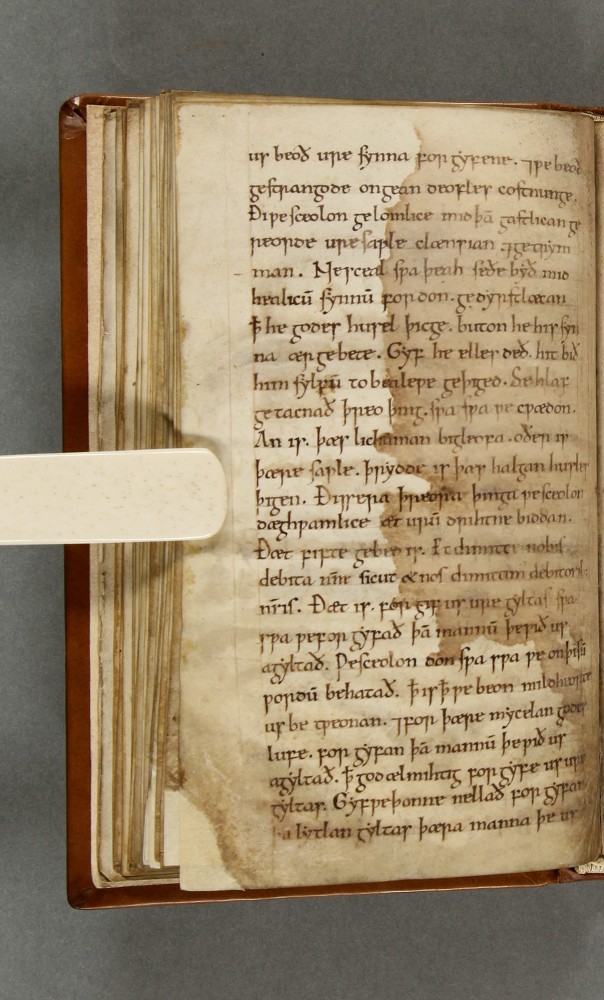 us beoð ure synna forgyfene. ⁊ ƿe beoð
gestrangode ongean deofles costnunge.
Ði ƿe sceolon gelomlice mid þā gastlican ge
reorde ure saƿle clænsian ⁊ getrym
man. Ne sceal sƿa þeah seðe byð mid
healicū synnū fordon. gedyrstlæcan
ꝥ he godes husel þicge. buton he his syn
na ær gebete. Gyf he elles deð. hit bið
him sylfū to bealeƿe geþiged. Se hlaf
getacnað þreo þing. sƿa sƿa ƿe cƿædon.
An is. þæs lichaman bigleofa. oðer is
þære saƿle. þrydde is þæs halgan husles
þigen. Ðissera þreora þinga ƿe sceolon
dæghƿamlice æt urum drihtne biddan.
Ðæt fifte gebed is. Et dimitte nobis
debita nr̄a sicut & nos dimittim debitorib
nr̄is. Ðæt is. forgif us ure gyltas sƿa
sƿa ƿe forgyfað þā mannū þe ƿið us
agyltað. Ƿe sceolon don sƿa sƿa ƿe on þisū
ƿordū behatað. ꝥ is ꝥ ƿe beon mildheorte
us betƿeonan. ⁊ for þære mycelan godes
lufe. forgyfan þā mannū þe ƿið us
agyltað. ꝥ god ælmihtig forgyfe us ure
gyltas. Gyf ƿe þonne nellað forgyfan
þa lytlan gyltas þæra manna þe us